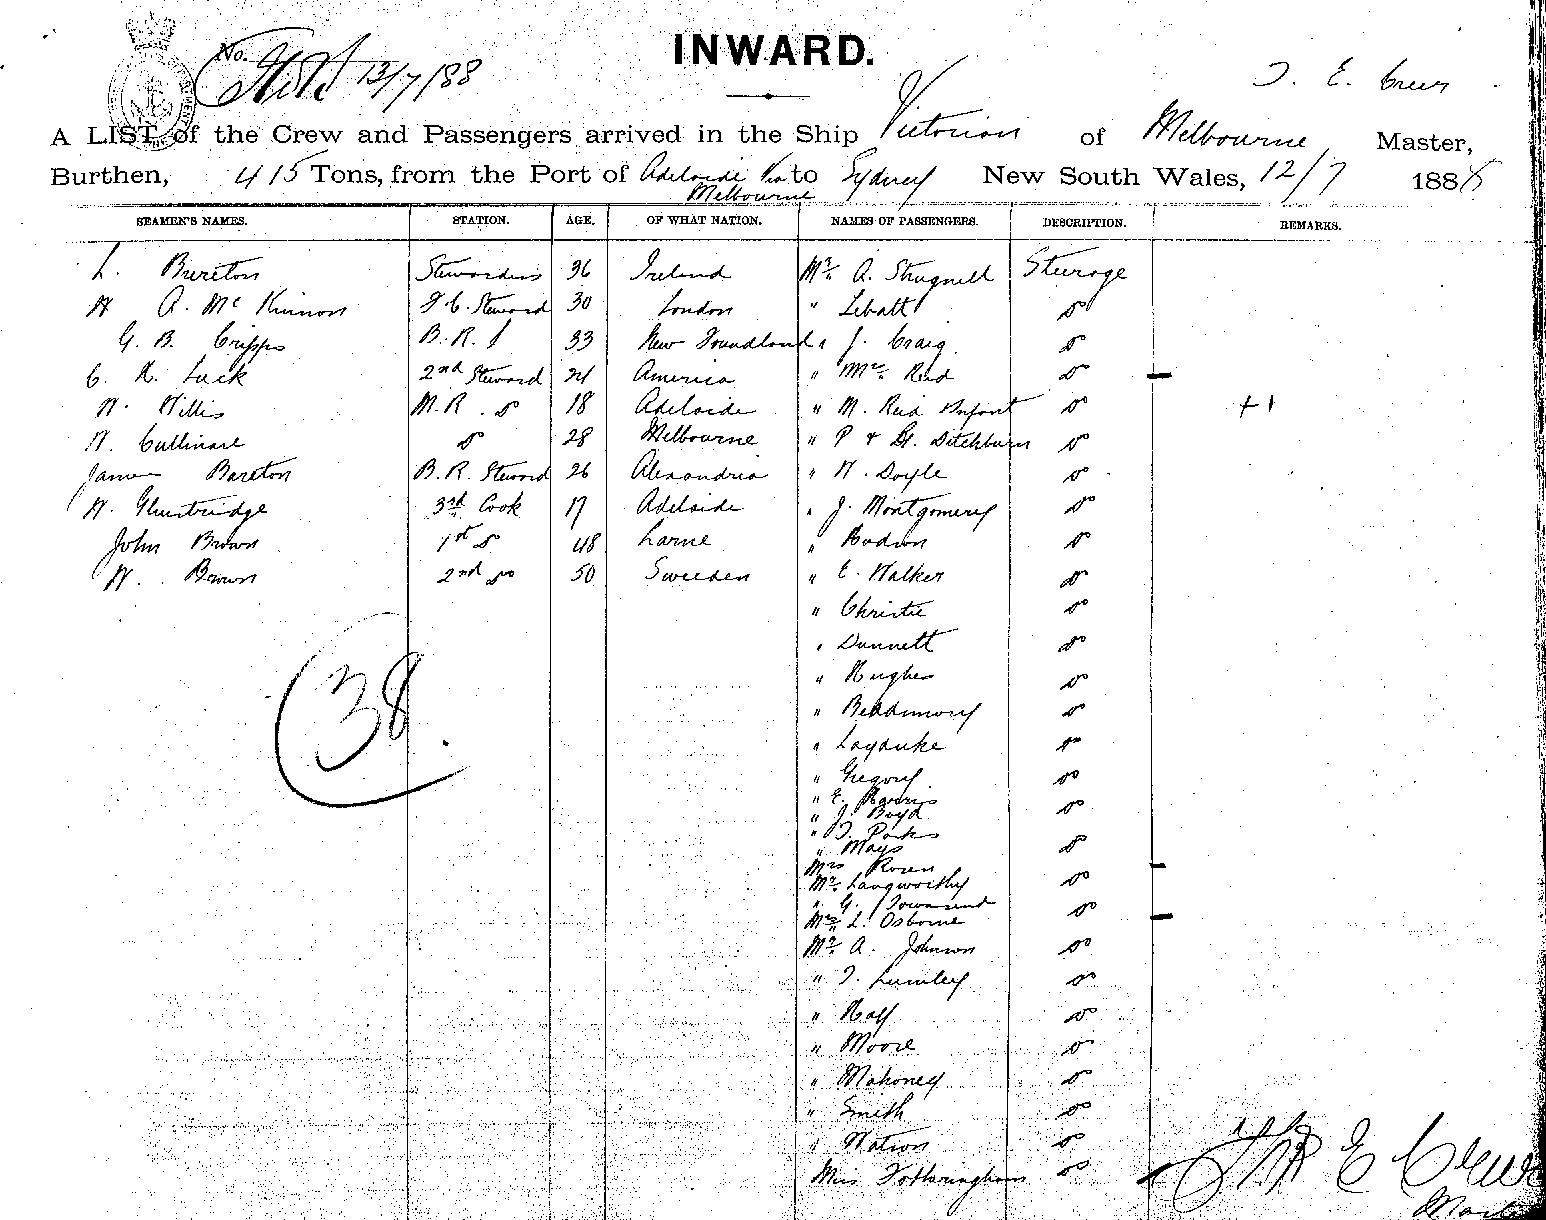 INWARD.
No.
13/7/88
T. E. Crews
A LIST of the Crew and Passengers arrived in the Ship Victorian of Melbourne, Master,
Burthen, 415 Tons, from the Port of Adelaide Via to Sydney New South Wales, 12/7 1888
Melbourne
SEAMEN'S NAMES. STATION. AGE. OF WHAT NATION. NAMES OF PASSENGERS. DESCRIPTION. REMARKS.
L. Bureton Stewardess 36 Ireland Mr. A. Strugnell Steerage
W A. Mc Kinnon F. C. Steward 30 London " Lebatt Do
G. B. Cripps B. R. S 33 New Foundland " J. Craig Do
C. H. Luck 2nd Steward 21 America " Mrs. Reid Do
W. Willis M. R. Do 18 Adelaide " M. Reid Infant Do +1
W. Cullinane Do 28 Melbourne " P & H. Ditchburn Do
James Bureton B. R. Steward 26 Alexandria " W. Doyle Do
W. 3rd Cook 17 Adelaide " J. Montgomery Do
John Brown 1st Do 48 Larne " Do
W. Brown 2nd Do 50 Sweeden " E. Walker Do
" Christie Do
" Dunnett Do
" Hughes Do
" Do
38
" Layduke Do
" Gregory Do
" E. Do
" J. Boyd
" T. Parks
" Mays Do
Mrs Rosen
Mr. Langworthy Do
" G. Townsend
Mrs. L. Osborne Do
Mr. A. Johnson Do
" T. Lumley Do
" Hay Do
" Moore Do
" Mahoney Do
" Smith Do
" Watson Do
Miss Fotheringham Do
E Crews